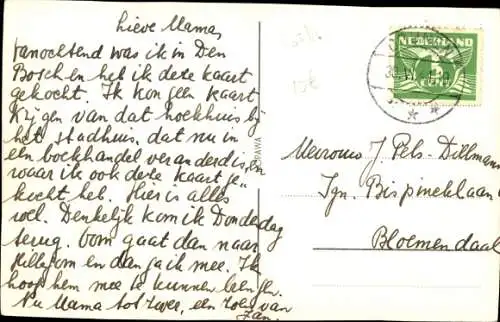 Lieve Mama,
vanochtend was ik in Den
Bosch en heb ik deze kaart
gekocht. Ik kon geen kaart
krijgen van dat hoekhuis bij
het stadhuis, dat nu in
een boekhandel veranderd is, en
waar ik ook deze kaart ge-
kocht heb. Hier is alles
wel. Denkelijk kom ik Donderdag
terug. Oom gaat dan naar
en dan ga ik mee. Ik
hoop hem mee te kunnen
Nu Mama tot zover, een zoen van
Jan.
Mevrouw J Pels-Dillmans
Ign. Bispincklaan
Bloemendaal
NEDERLAND